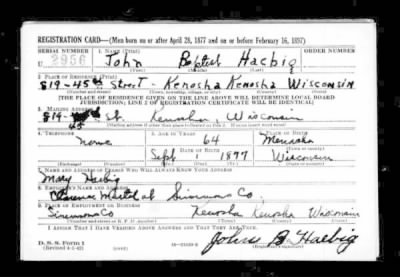 REGISTRATION CARD—(Men born on or after April 28, 1877 and on or before February 16, 1897)
SERIAL NUMBER 1. NAME (Print) ORDER NUMBER
U 2956 John Baptist Haebig
(First) (Middle) (Last)
2. PLACE OF RESIDENCE (Print)
819-45th Street - Kenosha Kenosha Wisconsin
(Number and street) (Town, township, village, or city) (County) (State)
[THE PLACE OF RESIDENCE GIVEN ON THE LINE ABOVE WILL DETERMINE LOCAL BOARD
JURISDICTION; LINE 2 OF REGISTRATION CERTIFICATE WILL BE IDENTICAL]
3. MAILING ADDRESS
819- 45 St. Kenosha, Wisconsin
[Mailing address if other than place indicated on line 2. If same insert word same]
4. TELEPHONE 5. AGE IN YEARS 6. PLACE OF BIRTH
None 64 Menasha
DATE OF BIRTH (Town or county)
Sept 1877 Wisconsin
(Exchange) (Number) (Mo.) (Day) (Yr.) (State or country)
7. NAME AND ADDRESS OF PERSON WHO WILL ALWAYS KNOW YOUR ADDRESS
Mary Haebig
8. EMPLOYER'S NAME AND ADDRESS
Simmons Co.
9. PLACE OF EMPLOYMENT OR BUSINESS
Simmons Co Kenosha Kenosha Wisconsin
(Number and street or R. F. D. number) (Town) (County) (State)
I AFFIRM THAT I HAVE VERIFIED ABOVE ANSWERS AND THAT THEY ARE TRUE.
D. S. S. Form 1
(Revised 4-1-42) (over)
John B Haebig